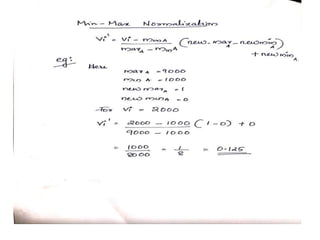 Min-Max Normalization
Vi' = Vi - minA / maxA - minA (new.maxA - newminA) + newminA
eg:
Here
maxA = 9000
min A = 1000
new maxA = 1
new minA = 0
For Vi = 2000
Vi' = 2000 - 1000 / 9000 - 1000 (1-0) + 0
= 1000 / 8000 = 1/8 = 0.125